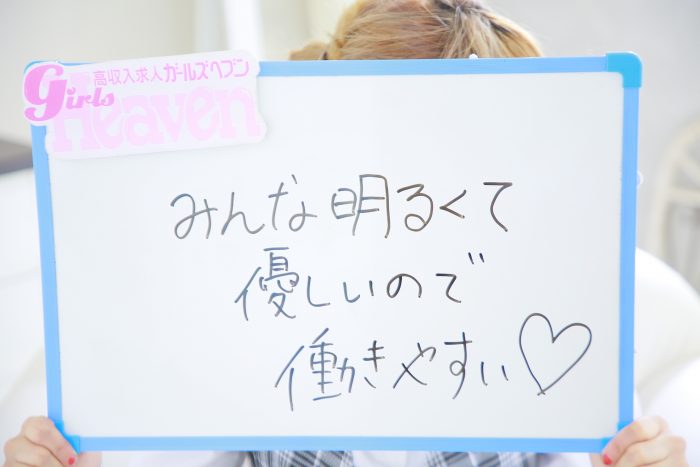 高収入求人ガールズヘブン
Girls
Heaven
みんな明るくて
優しいので
働きやすい♡